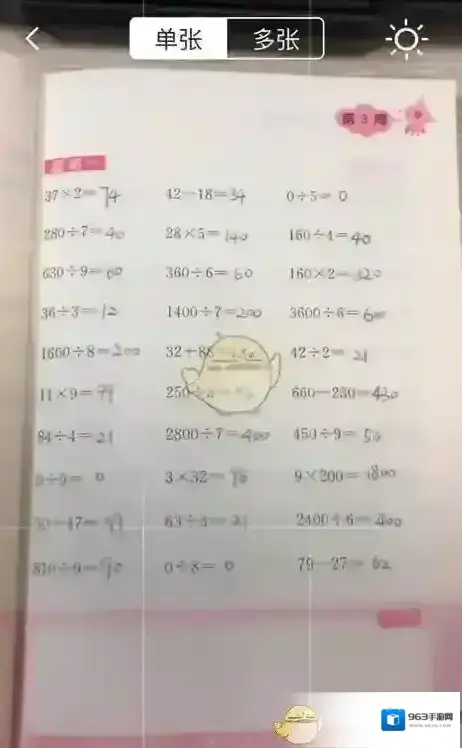 单张 多张
第3周
37×2=74 42-18=34 0÷5=0
280÷7=40 28×5=140 160÷4=40
630÷9=60 360÷6=60 160×2=320
36÷3=12 1400÷7=200 3600÷6=600
1600÷8=200 32+88 42÷2=21
11×9=99 250 660-230=430
84÷4=21 2800÷7=400 450÷9=50
= 0 3×32= 9×200=1800
-47= 63÷3=21 2400÷6=400
810÷9=90 0÷8=0 79-27=52
963手游网